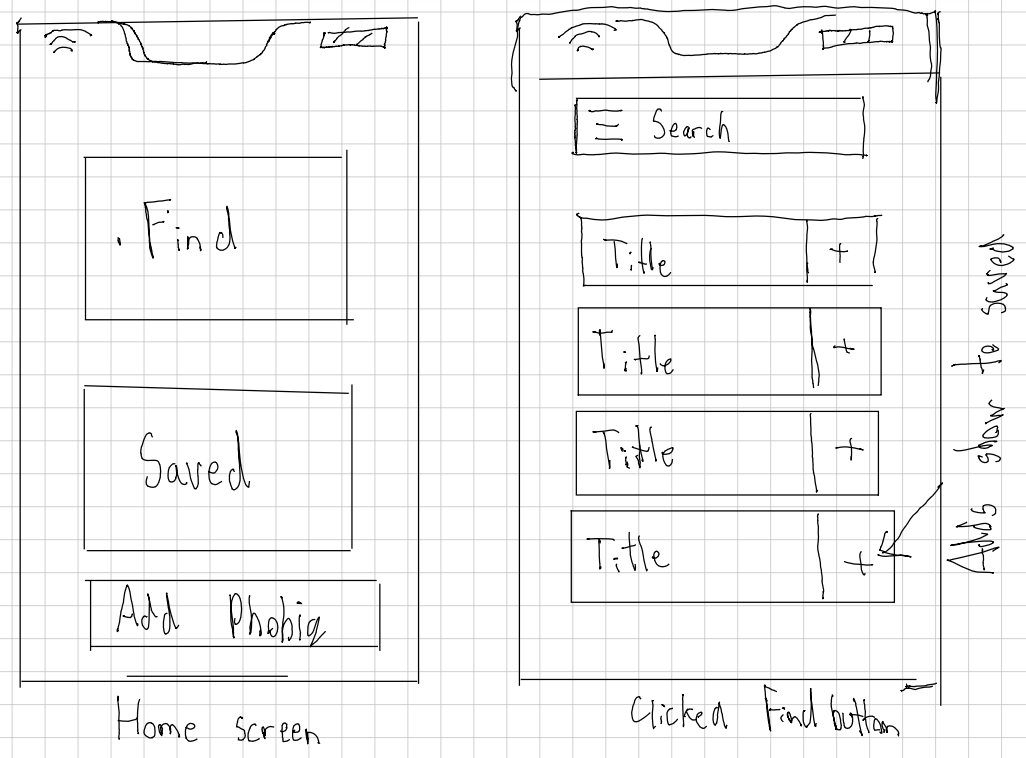 Find
Saved
Add Phobia
Home screen
Search
Title +
Title +
Title +
Title +
Adds show to saved
Clicked Find button